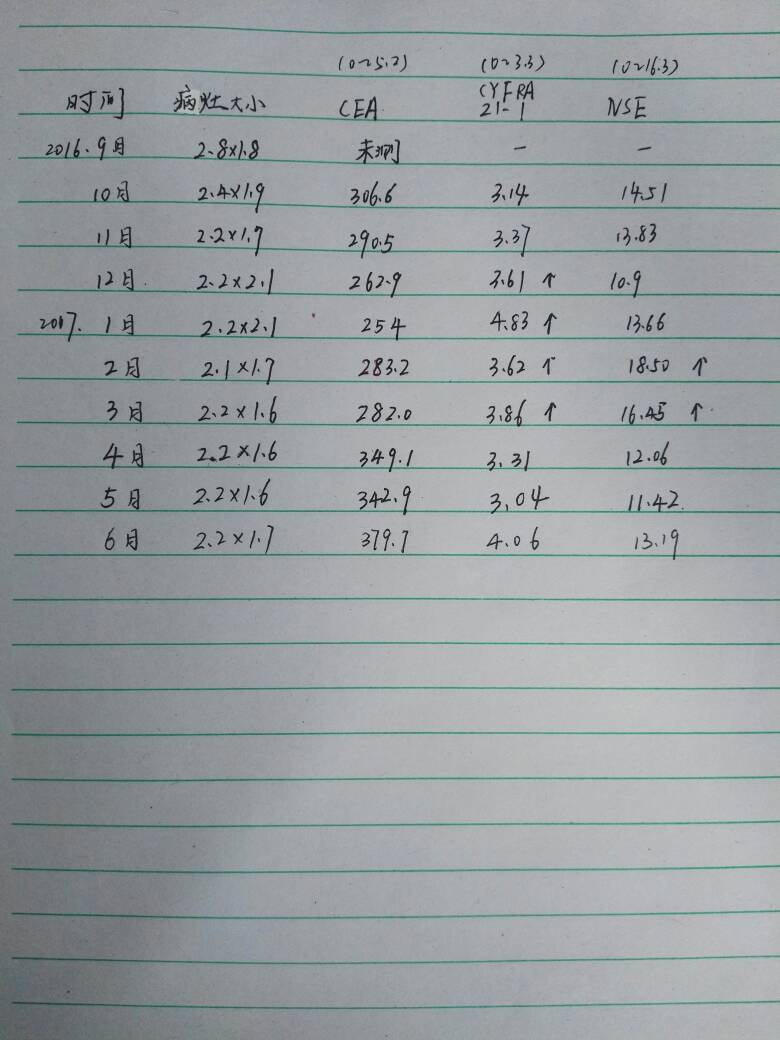 (0~5.2) (0~3.3) (0~16.3)
时间 病灶大小 CEA CYFRA 21-1 NSE
2016.9月 2.8×1.8 未测 — —
10月 2.4×1.9 306.6 3.14 14.51
11月 2.2×1.7 290.5 3.37 13.83
12月 2.2×2.1 262.9 3.61 ↑ 10.9
2017.1月 2.2×2.1 254 4.83 ↑ 13.66
2月 2.1×1.7 283.2 3.62 ↑ 18.50 ↑
3月 2.2×1.6 282.0 3.86 ↑ 16.45 ↑
4月 2.2×1.6 349.1 3.31 12.06
5月 2.2×1.6 342.9 3.04 11.42
6月 2.2×1.7 379.7 4.06 13.19